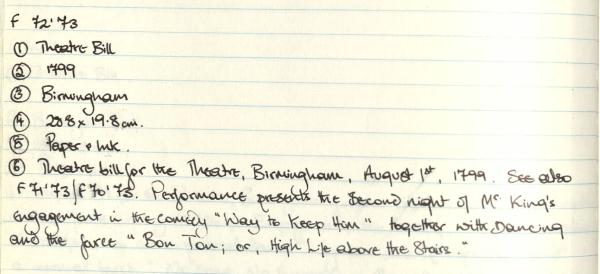 F 72'73
① Theatre Bill
② 1799
③ Birmingham
④ 20.8 x 19.8 cm.
⑤ Paper & Ink.
⑥ Theatre bill for the Theatre, Birmingham, August 1st, 1799. See also
F 71'73/F70'73. Performance presents the second night of Mr King's
engagement in the comedy "Way to Keep Him" together with Dancing
and the farce "Bon Ton; or, High Life above the Stairs."